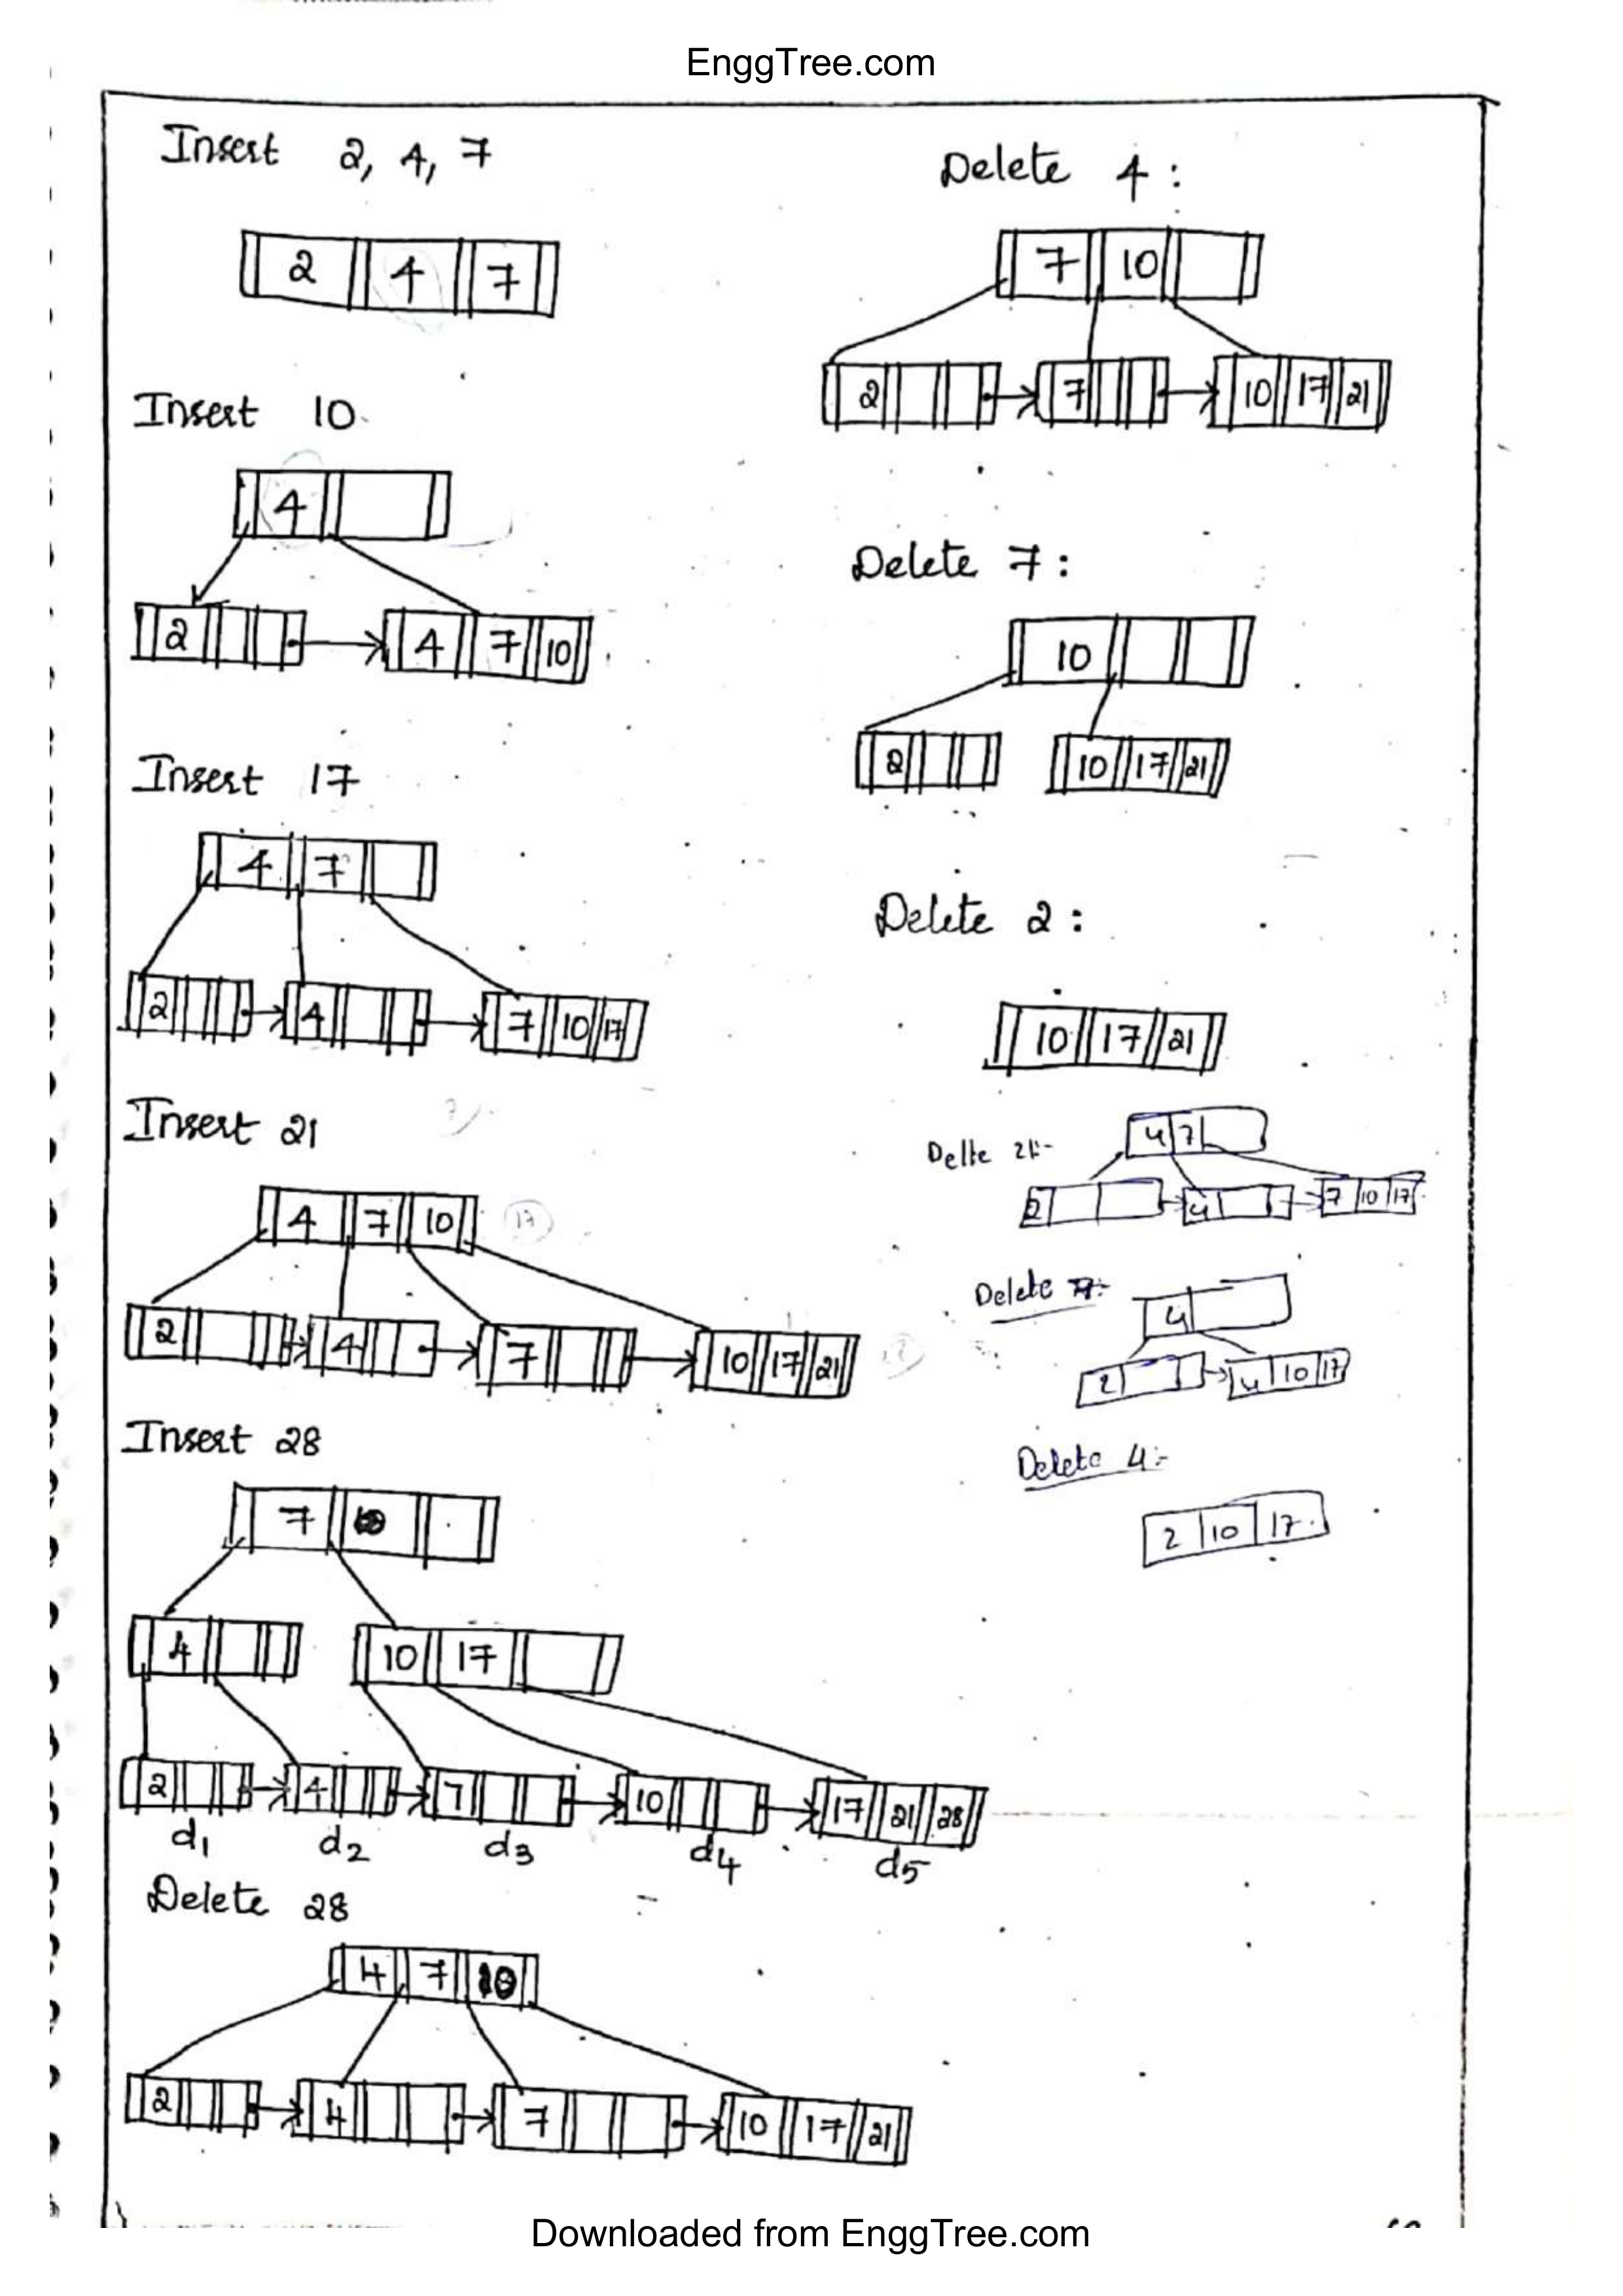 EnggTree.com
Insert 2, 4, 7
2 4 7
Insert 10
4
2 4 7 10
Insert 17
4 7
2 4 7 10 17
Insert 21
4 7 10 17
2 4 7 10 17 21
Insert 28
7
4 10 17
2 4 7 10 17 21 28
d1 d2 d3 d4 d5
Delete 28
4 7 10
2 4 7 10 17 21
Delete 4:
7 10
2 7 10 17 21
Delete 7:
10
2 10 17 21
Delete 2:
10 17 21
Delte 21:-
4 7
2 4 7 10 17
Delete 7:-
4
2 4 10 17
Delete 4:-
2 10 17
Downloaded from EnggTree.com